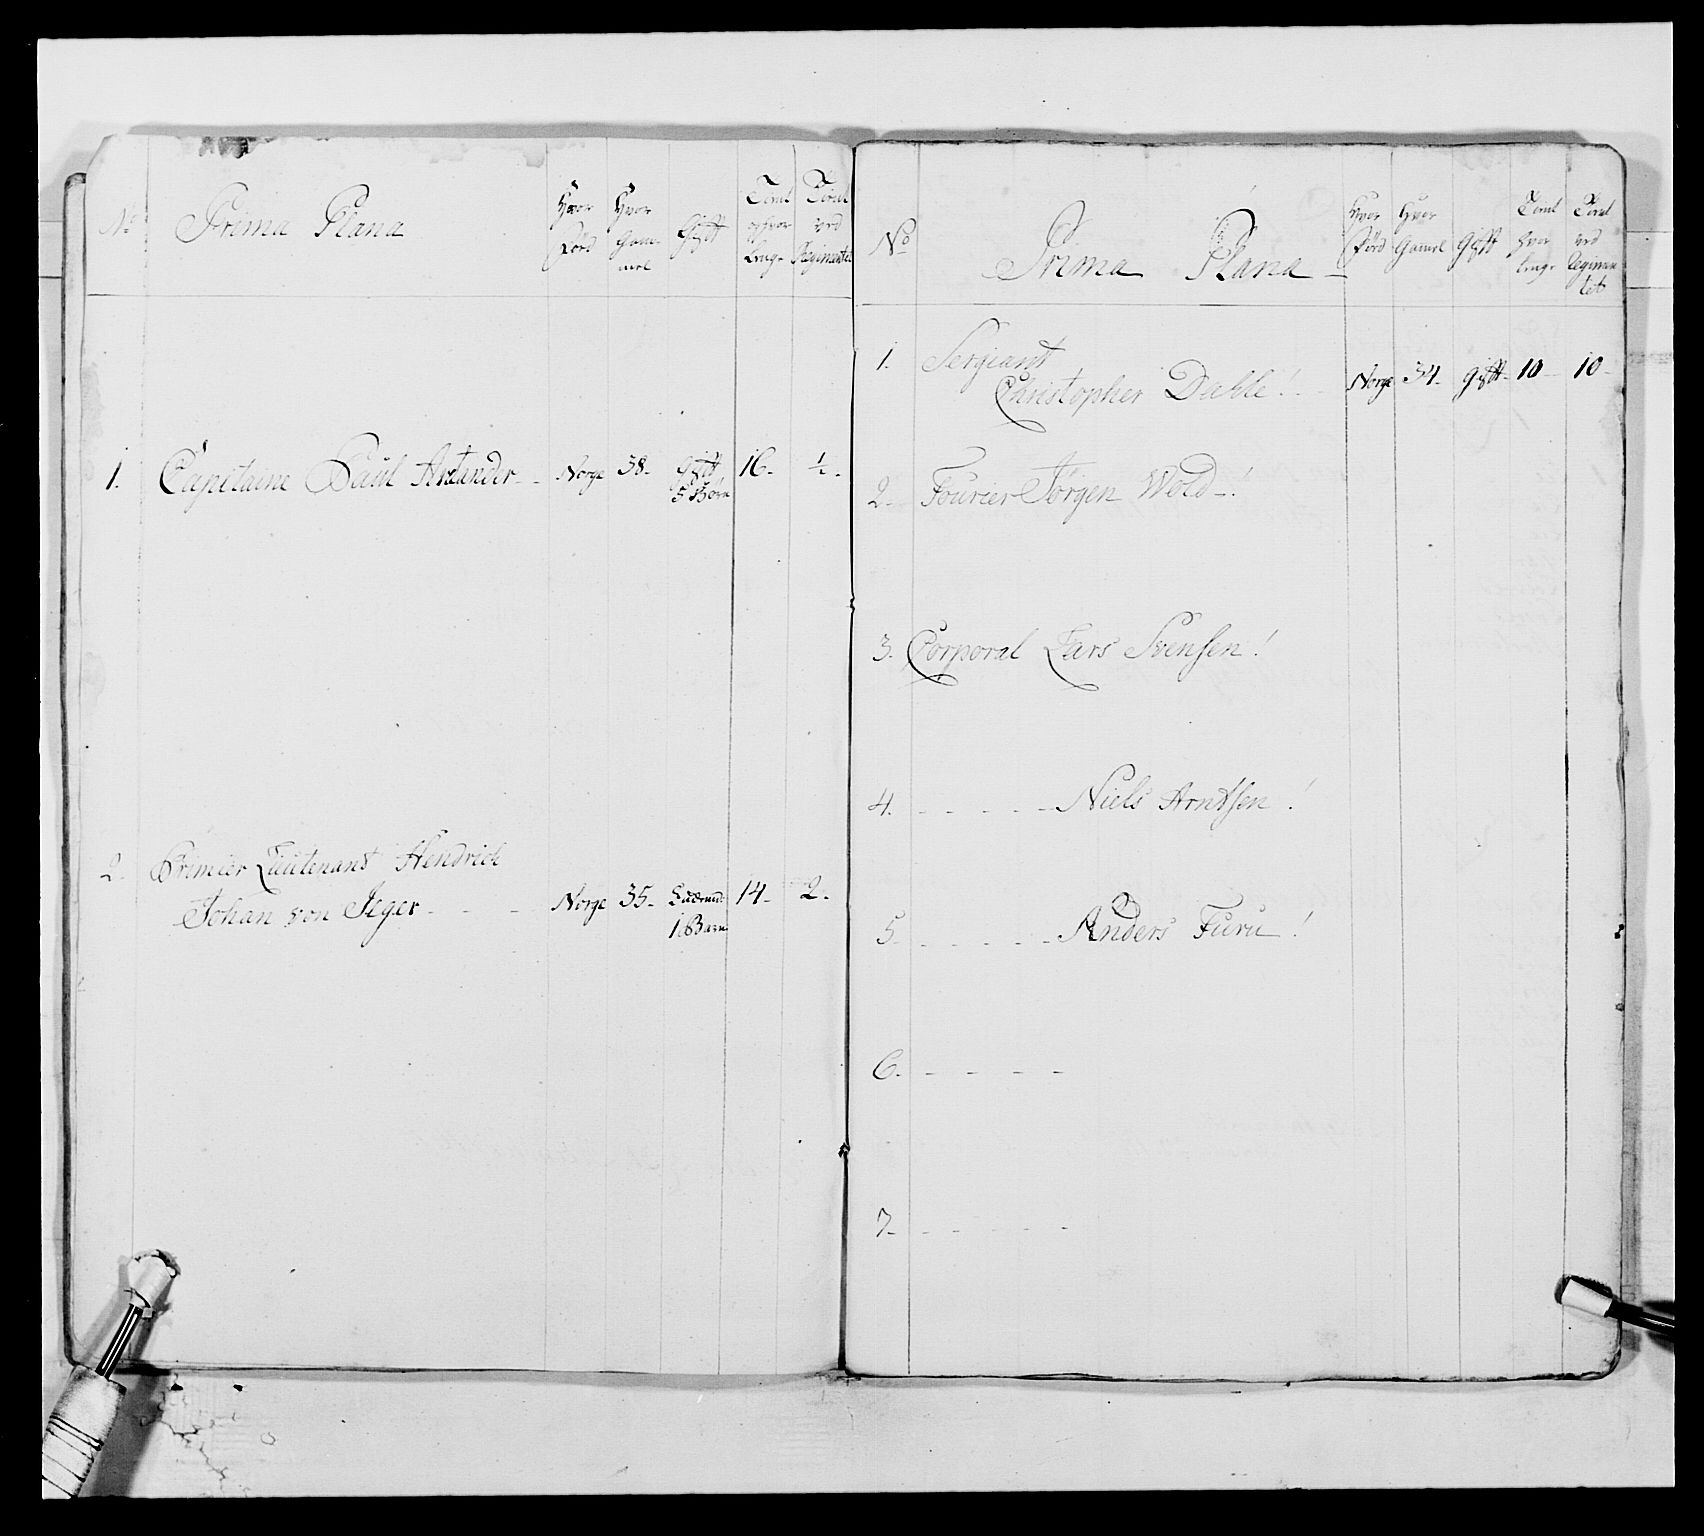 No Prima Plana Hvor Förd Hvor Gam- mel Gift Tient ophvor leng- Tient ved Regimentet
1. Capitaine Paul Arxander - - Norge 38- Gift 16- ½-
5 Börn
2. Primier Lieutenant Hendrich
Johan von Jeger - - - Norge 35- 14- 2-
1 Barn
No Prima Plana Hvor Förd Hvor Gamel Gift Tient hvor leng- Tient ved Regimen tet
1. Sergiant
Christopher Dahle! Norge 34- Gift- 10- 10-
2- Fourier Jörgen Wold-!
3. Corporal Lars Svensen!
4. - - - - - Niels Arntsen!
5. - - - - - Anders Furu!
6. - - - -
7- - - - - -